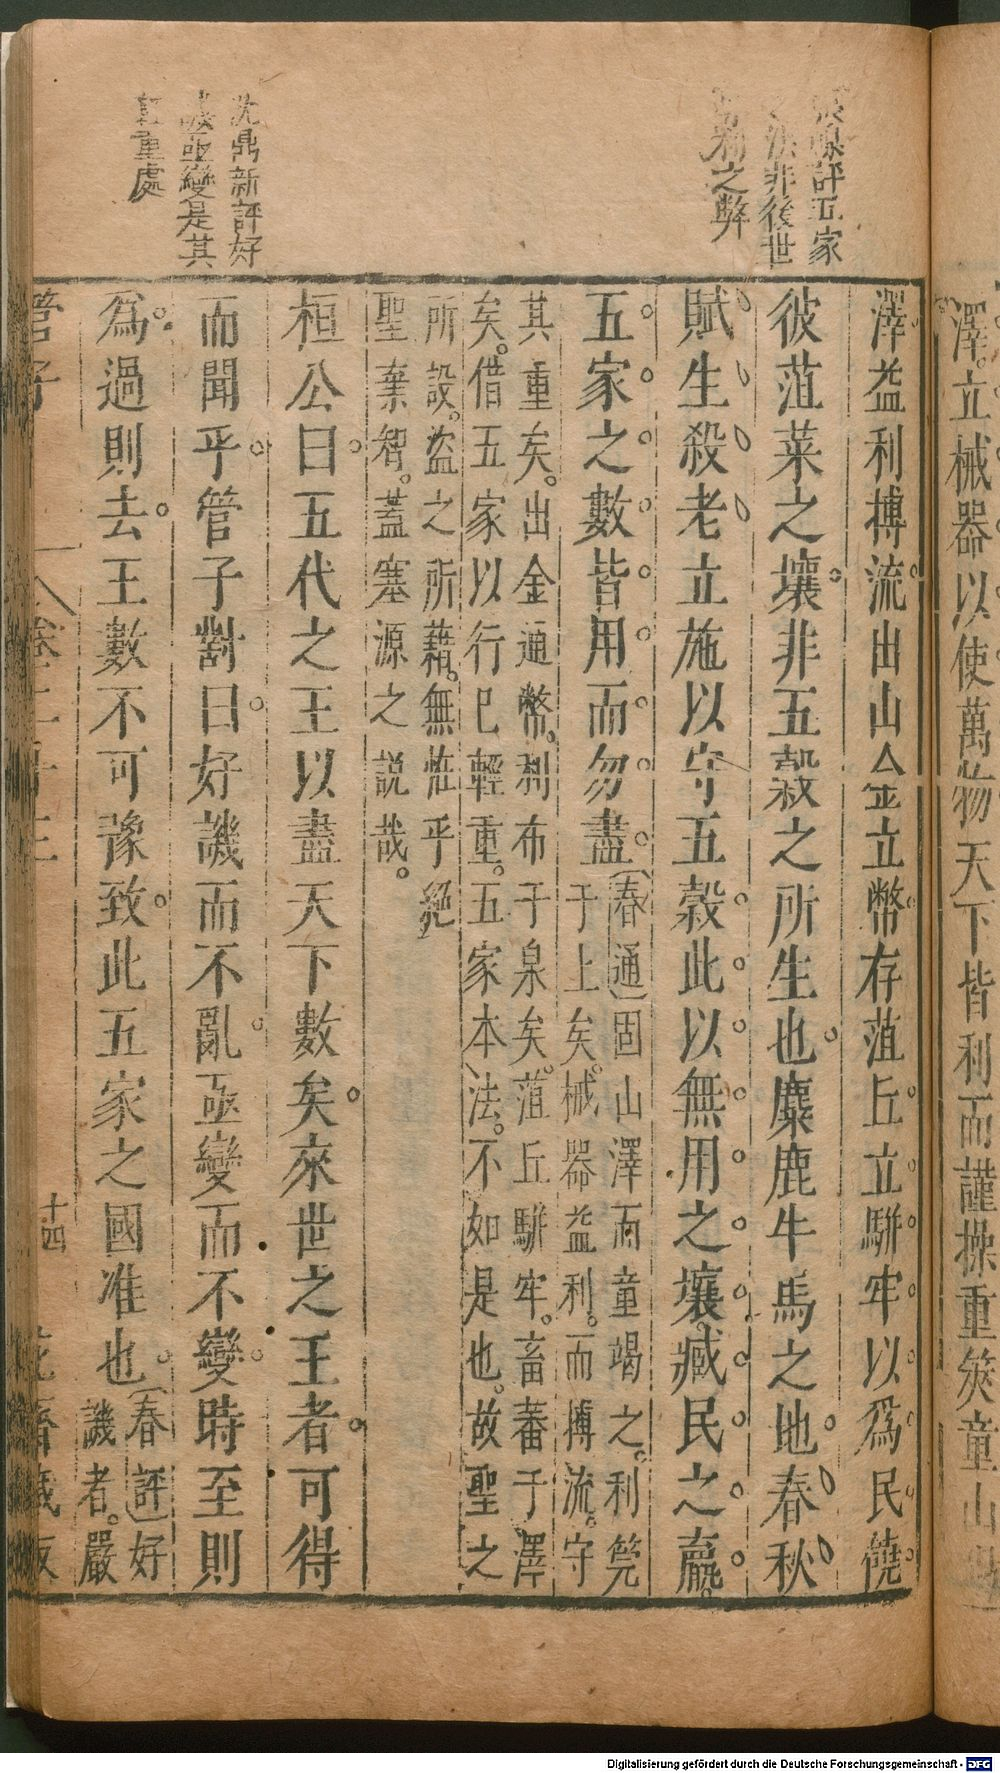 澤立械器以使萬物天下皆利而謹操重筴童山
評五家
法非後世
利之弊
澤益利搏流出山金立幣存菹丘立駢牢以爲民饒
彼菹菜之壤非五穀之所生也麋鹿牛馬之地春秋
賦生殺老立施以守五穀此以無用之壤臧民之羸
五家之數皆用而勿盡
(春通)固山澤而童竭之利筦
于上矣械器益利而搏流守
其重矣出金通幣利布于泉矣菹丘駢牢畜蕃于澤
矣借五家以行已輕重五家本法不如是也故聖之
所設盜之所藉無怪乎絕
聖棄智蓋塞源之說哉
沈鼎新評好
譏亟變是其
重處
桓公曰五代之王以盡天下數矣來世之王者可得
而聞乎管子對曰好譏而不亂亟變而不變時至則
爲過則去王數不可豫致此五家之國准也
(春評)好
譏者嚴
管子
卷二十三
十四
花齋藏板
Digitalisierung gefördert durch die Deutsche Forschungsgemeinschaft - DFG